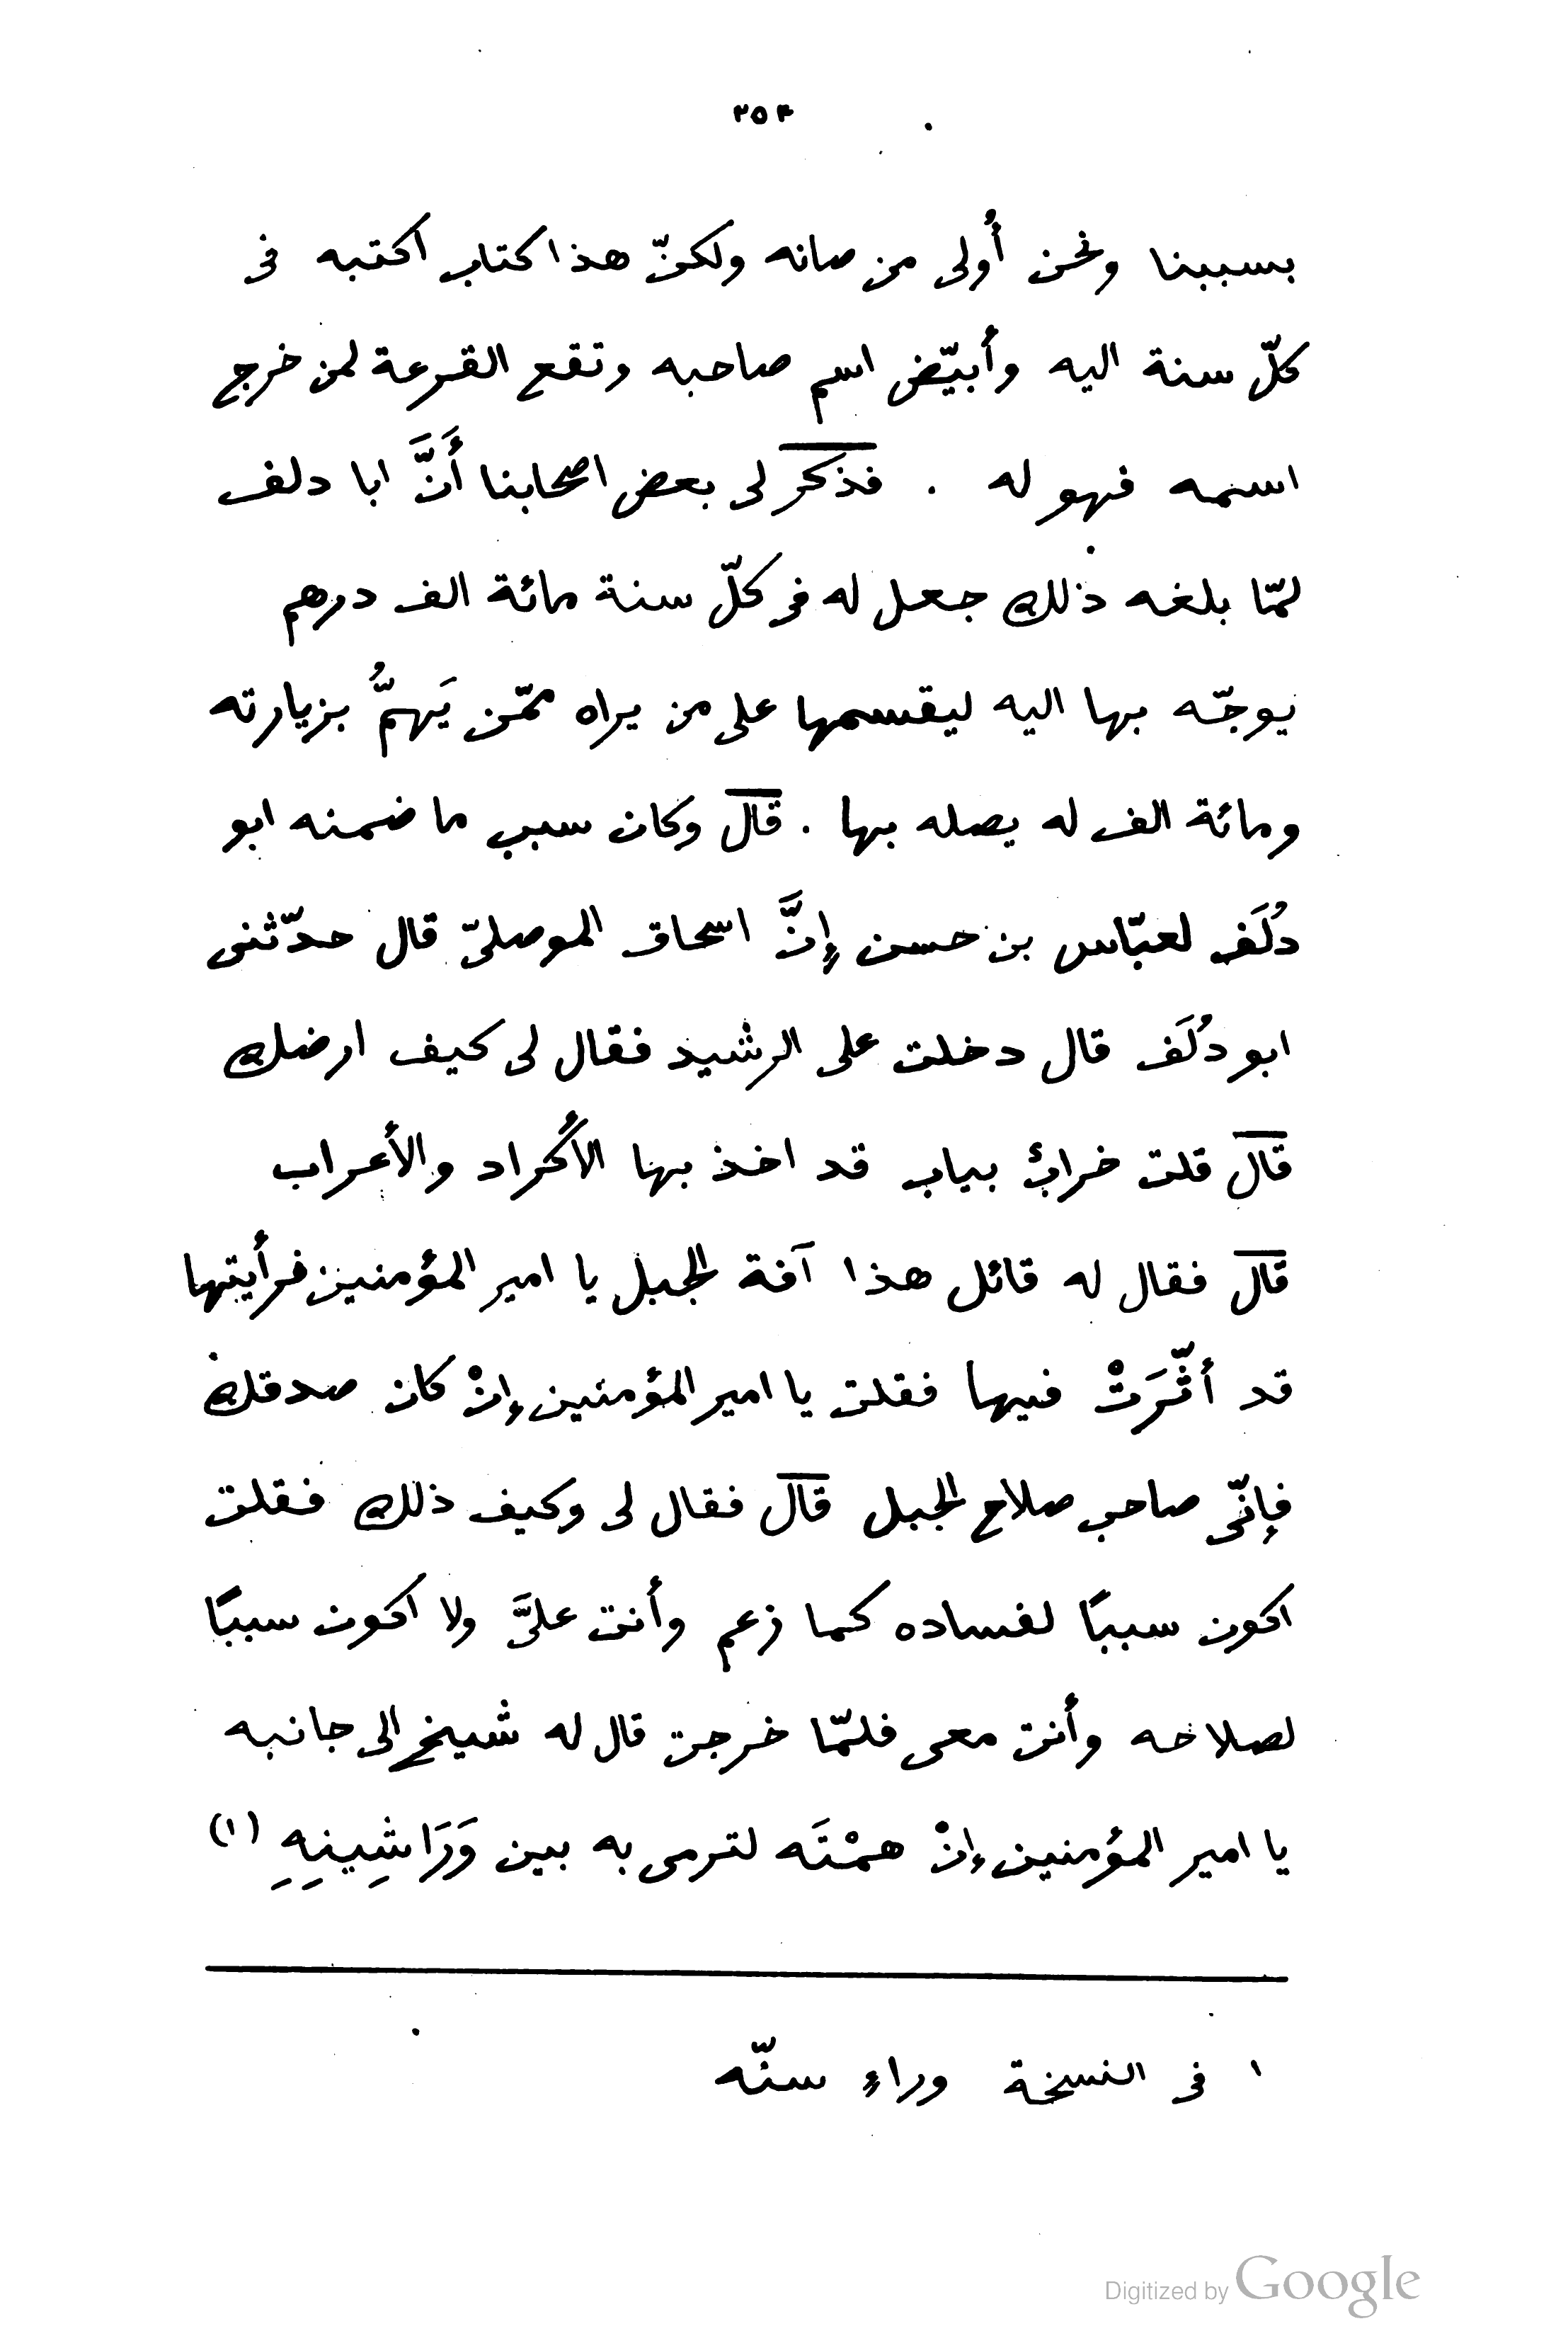 ٢٥٣
بسببنا ونحن أُولى من صانه ولكنّ هذا كتاب اكتبه فى
كلّ سنة اليه وأبيّض اسم صاحبه وتقع القرعة لمن خرج
اسمه فهو له . فذكر لى بعض اصحابنا أَنَّ ابا دلف
لمّا بلغه ذلك جعل له فى كلّ سنة مائة الف درهم
يوجّه بها اليه ليقسمها على من يراه ممّن يَهمُّ بزيارته
ومائة الف له يصله بها . قال وكان سبب ما ضمنه ابو
دُلَف لعبّاس بن حسن إِنَّ اسحاق الموصلىّ قال حدّثنى
ابو دُلَف قال دخلت على الرشيد فقال لى كيف ارضك
قال قلت خرابٌ يباب قد اخذ بها الأكراد والأعراب
قال فقال له قائل هذا آفة الجبل يا امير المؤمنين فرأيتها
قد أثّرَتْ فيها فقلت يا امير المؤمنين إنْ كان صدقك
فإنّى صاحب صلاح الجبل قال فقال لى وكيف ذلك فقلت
اكون سببًا لفساده كما زعم وأنت علىَّ ولا اكون سببًا
لصلاحه وأنت معى فلمّا خرجت قال له شيخ الى جانبه
يا امير المؤمنين إنْ همْتَه لترمى به بين وَرَاشِينِهِ (١)
١ فى النسخة وراءٍ سنّه
Digitized by Google